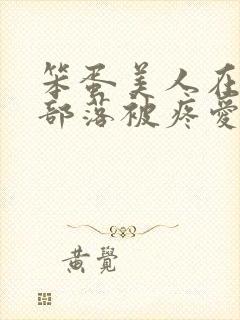 笨蛋美人在
部落被疼愛
黄覺